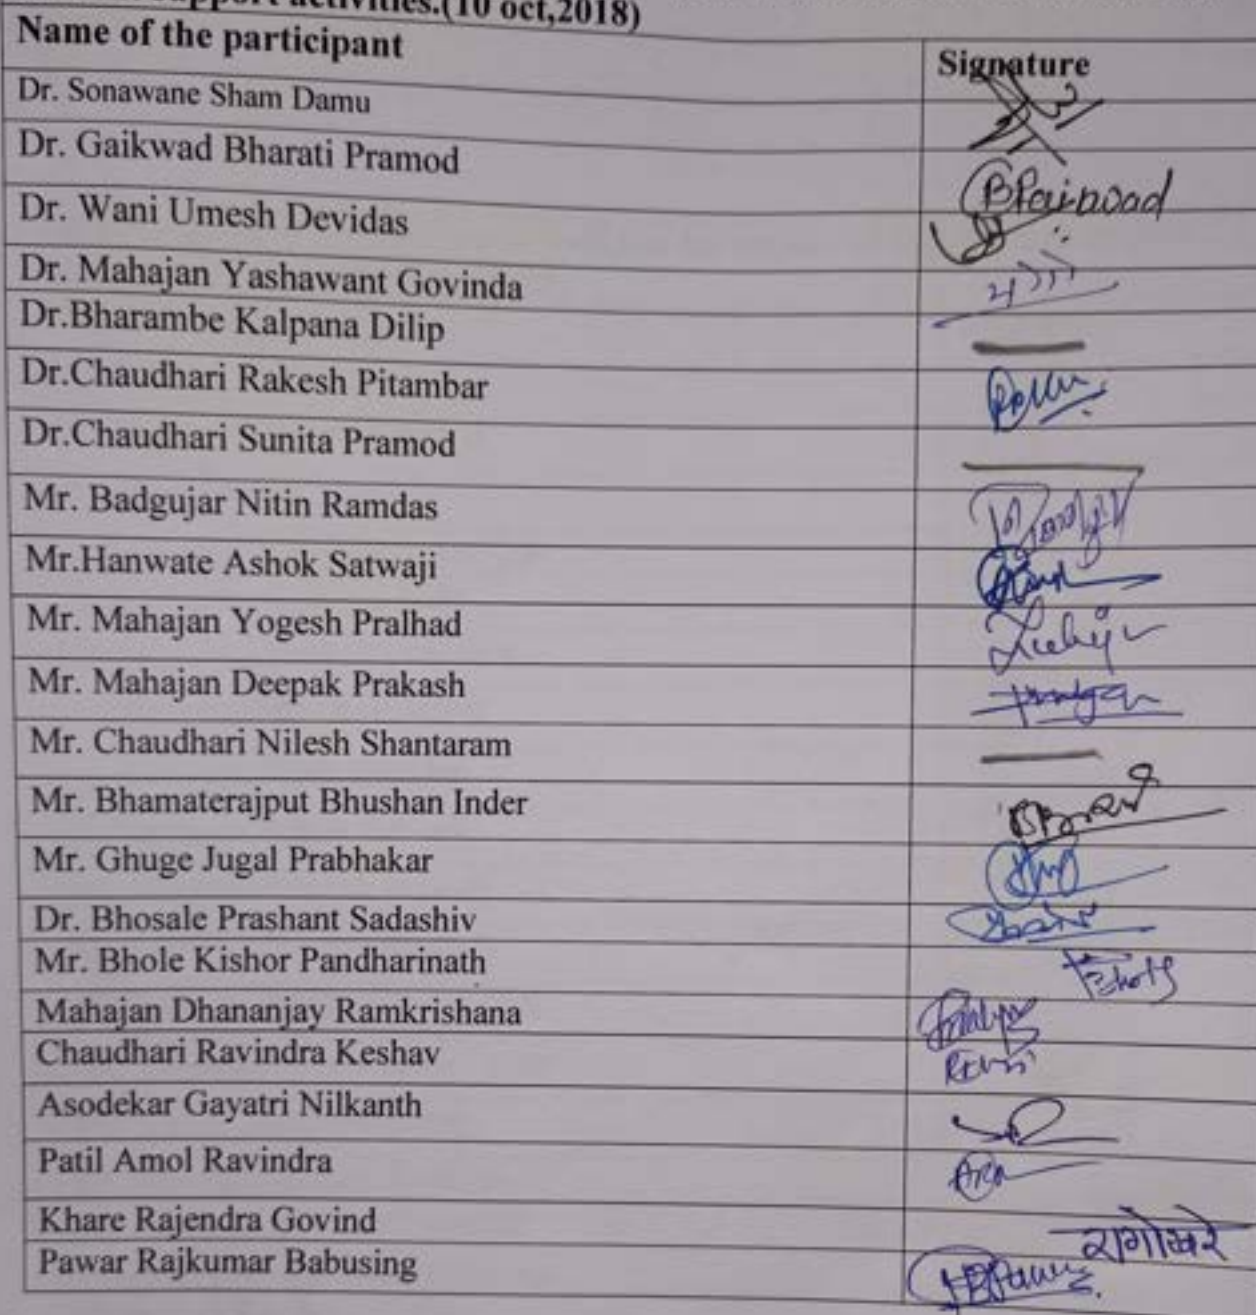 support activities.(10 oct,2018)
Name of the participant Signature
Dr. Sonawane Sham Damu
Dr. Gaikwad Bharati Pramod
Dr. Wani Umesh Devidas
Dr. Mahajan Yashawant Govinda
Dr.Bharambe Kalpana Dilip
Dr.Chaudhari Rakesh Pitambar
Dr.Chaudhari Sunita Pramod
Mr. Badgujar Nitin Ramdas
Mr.Hanwate Ashok Satwaji
Mr. Mahajan Yogesh Pralhad
Mr. Mahajan Deepak Prakash
Mr. Chaudhari Nilesh Shantaram
Mr. Bhamaterajput Bhushan Inder
Mr. Ghuge Jugal Prabhakar
Dr. Bhosale Prashant Sadashiv
Mr. Bhole Kishor Pandharinath
Mahajan Dhananjay Ramkrishana
Chaudhari Ravindra Keshav
Asodekar Gayatri Nilkanth
Patil Amol Ravindra
Khare Rajendra Govind रागोखरे
Pawar Rajkumar Babusing